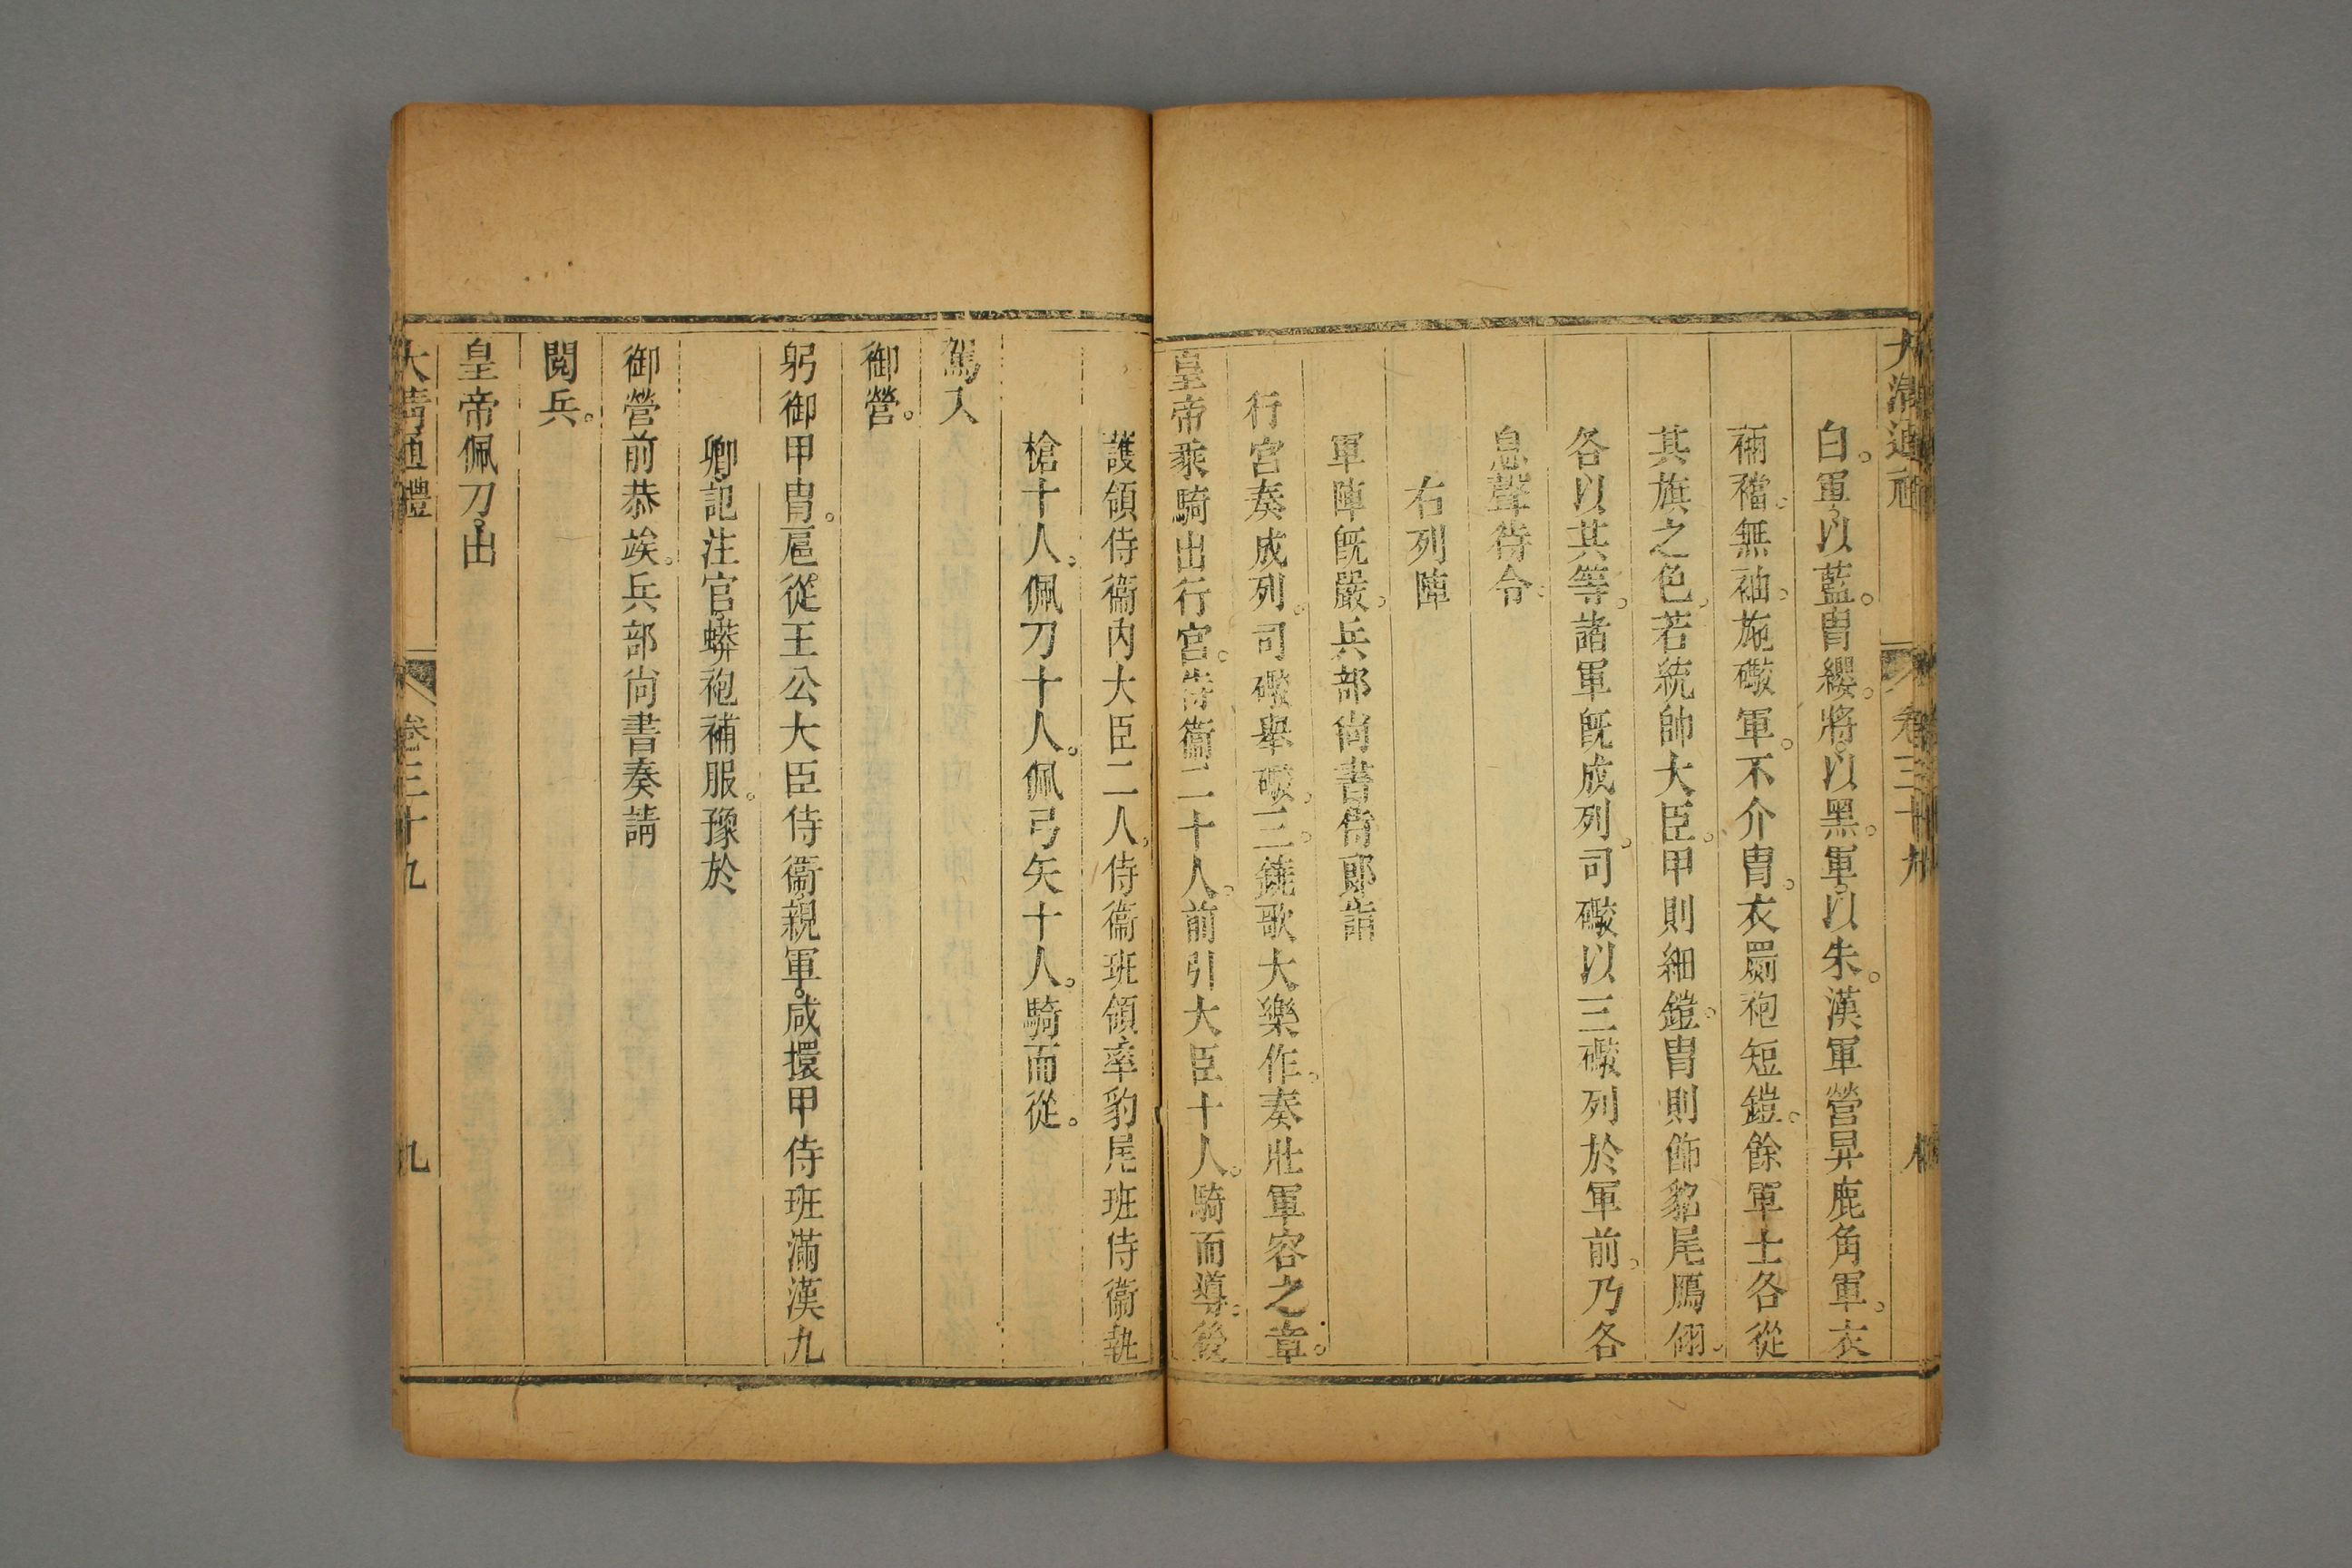 大淸通禮 卷三十九 八
白。軍以藍。冑纓。將以黑。軍以朱。漢軍營舁鹿角軍。衣
裲襠。無袖。施礮軍。不介冑。衣罽袍短鎧。餘軍士各從
其旗之色。若統帥大臣。甲則細鎧。冑則飾貂尾鴈翎。
各以其等。諸軍旣成列。司礮以三礮列於軍前。乃各
息聲待令。
右列陣
軍陣旣嚴。兵部尙書侍郞詣
行宮奏成列。司礮舉礮。三。鐃歌大樂作。奏壯軍容之章。
皇帝乘騎出行宮。侍衞二十人。前引大臣十人。騎而導。後
護領侍衞內大臣二人。侍衞班領率豹尾班侍衞執
槍十人。佩刀十人。佩弓矢十人。騎而從。
駕入
御營。
躬御甲冑。扈從王公大臣侍衞親軍。咸擐甲侍班滿漢九
卿記注官蟒袍補服。豫於
御營前恭竢。兵部尙書奏請
閱兵。
皇帝佩刀。出
大淸通禮 卷三十九 九